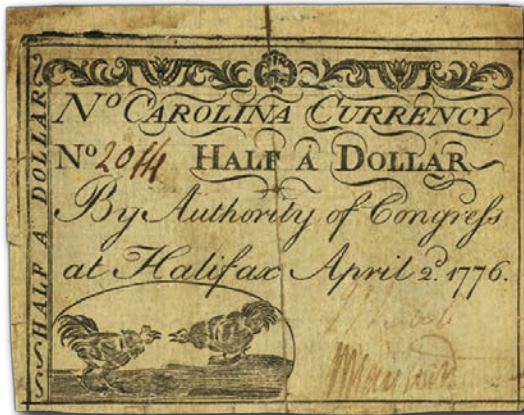 HALF A DOLLAR
No CAROLINA CURRENCY
No 2014 HALF A DOLLAR
By Authority of Congress
at Halifax April 2d. 1776.